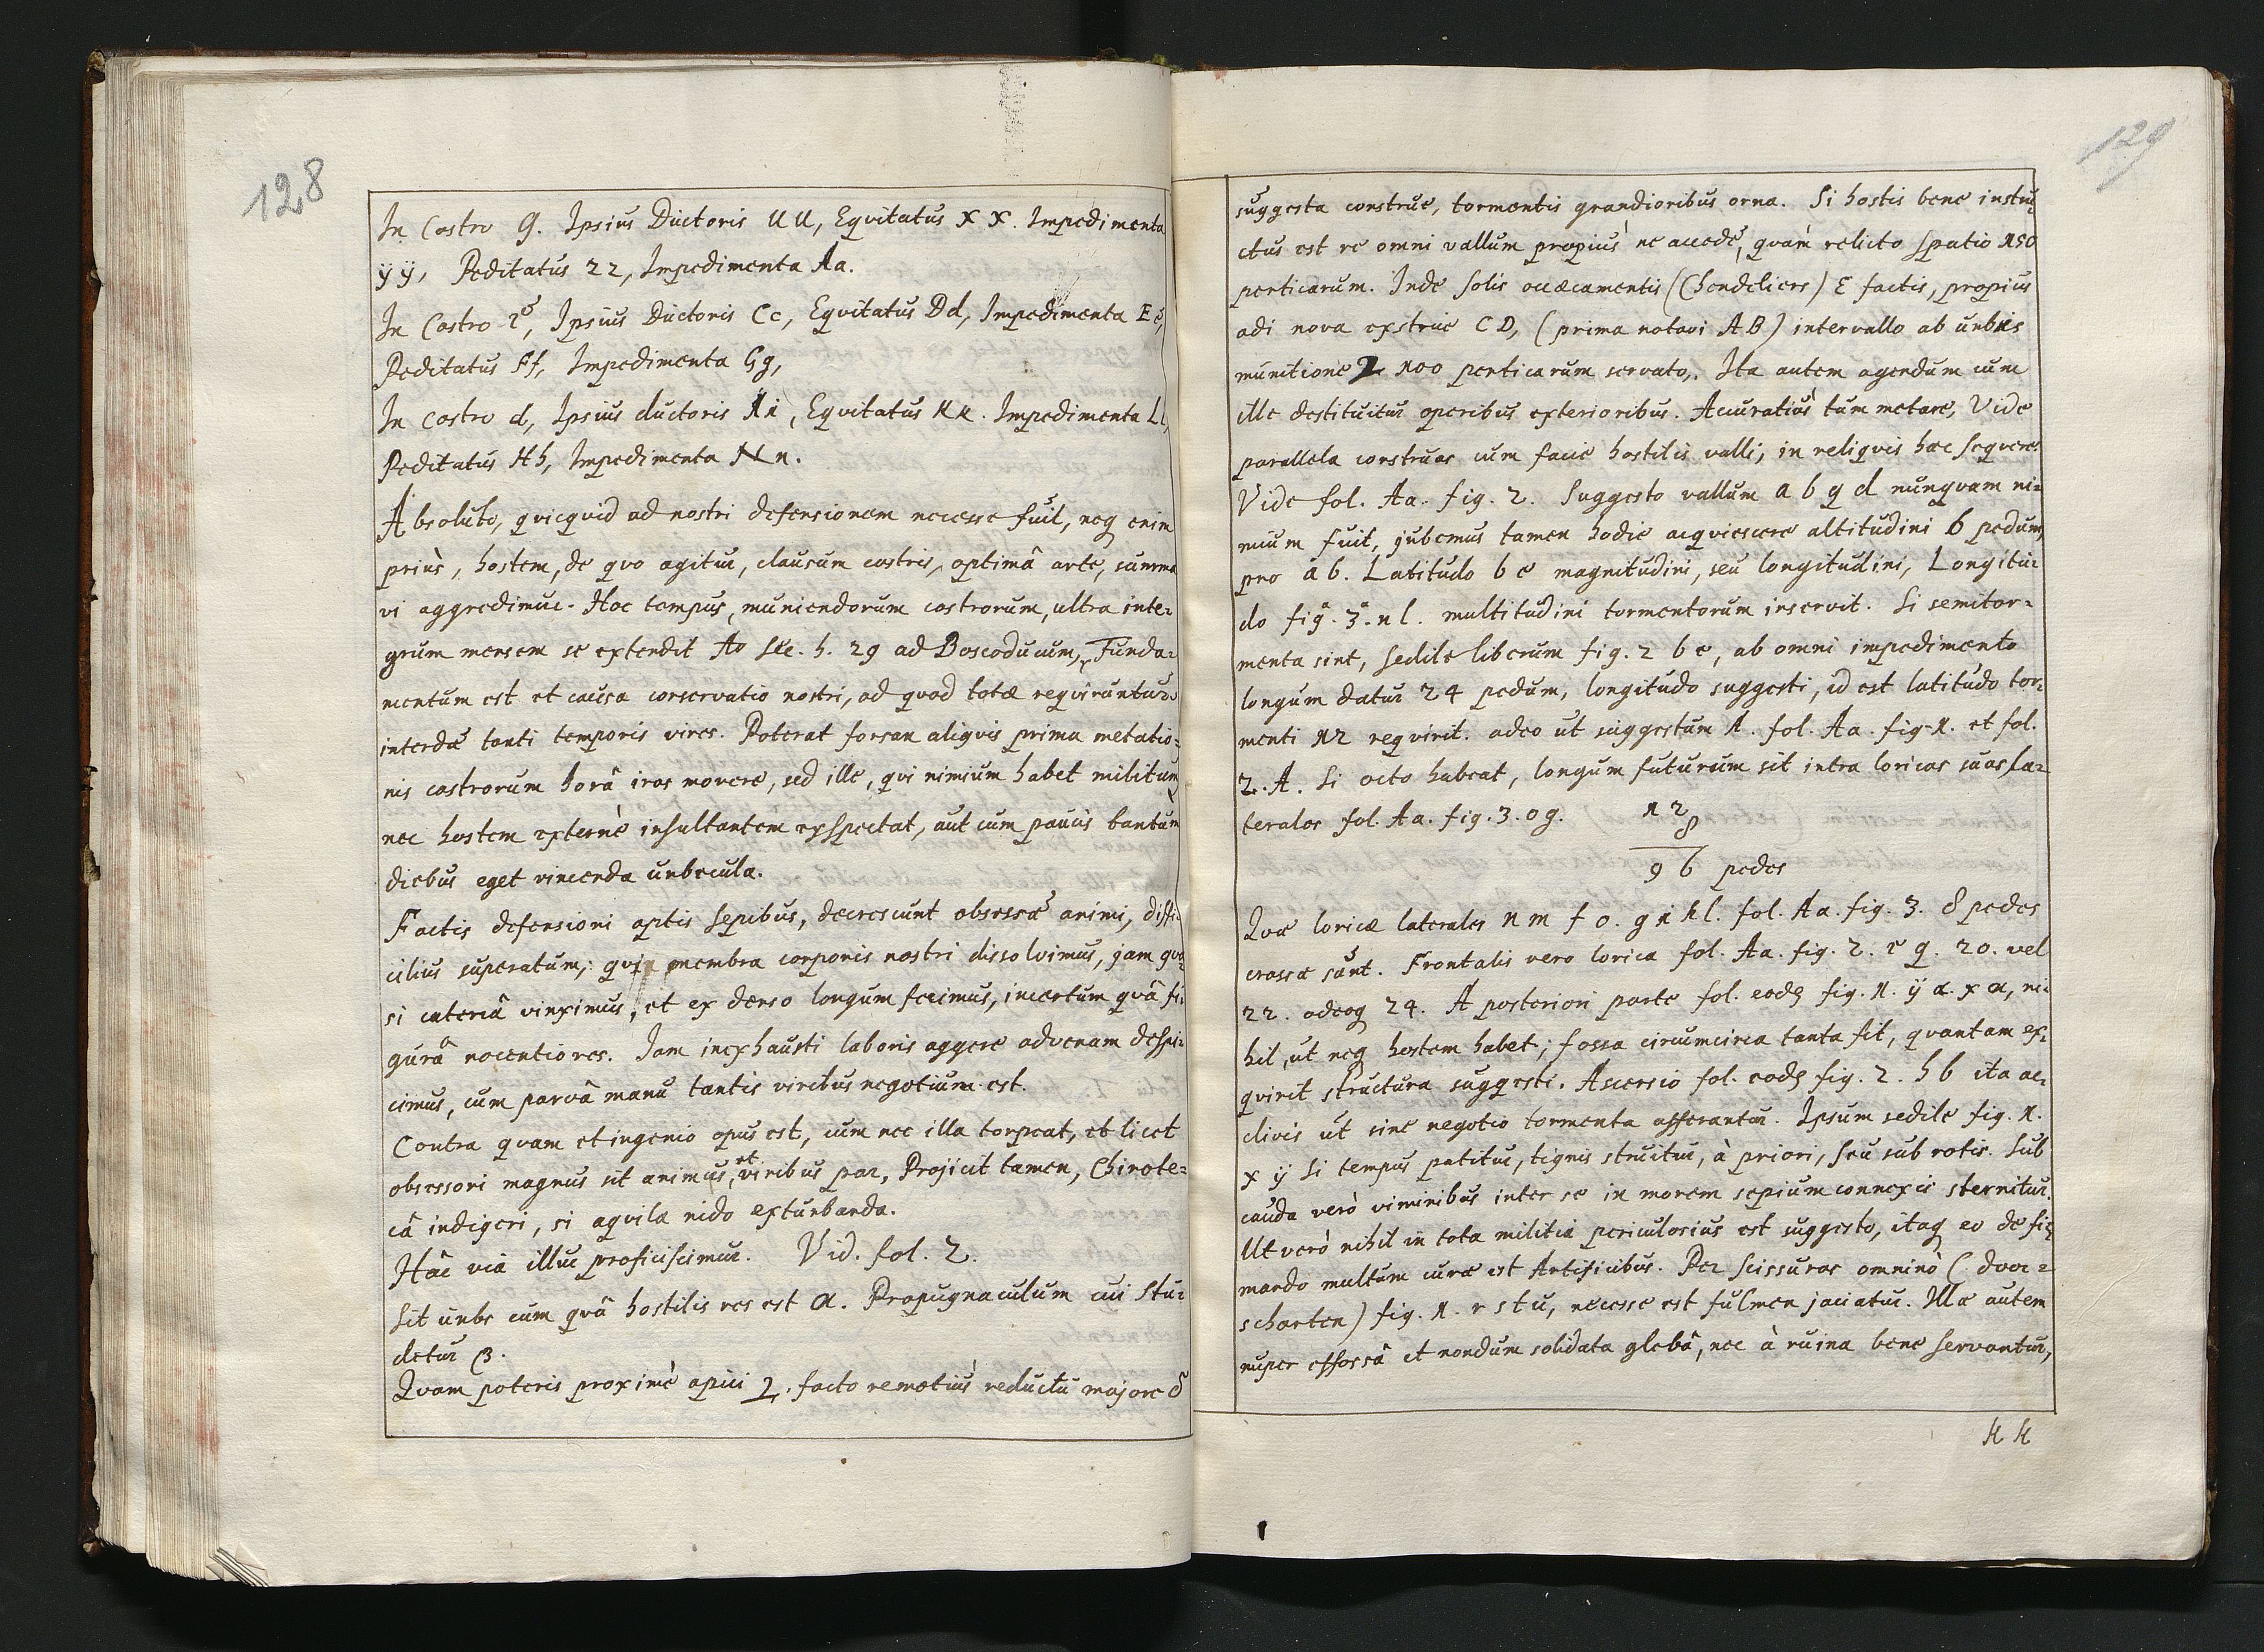 128
In Castro g. Ipsius Ductoris UU, Eqvitatus X X. Impedimenta
ÿ ÿ, Peditatus 22, Impedimenta Aa.
In Castro Ipsius Ductoris Cc, Eqvitatus Dd, Impedimenta Ee,
Peditatus Ff, Impedimenta Gg,
In Castro d, Ipsius ductoris Ii, Eqvitatus Kk. Impedimenta Ll,
Peditatus Hh, Impedimenta Nn.
Absoluto, qvicqvid ad nostri defensionem necesse fuit, neq enim
priùs, hostem, de qvo agitur, clausum castris, optimâ arte, summa
vi aggredimur. Hoc tempus, muniendorum castrorum, ultra inte=
grum mensem se extendit Ao Sæc. h. 29 ad Boscoducum, Funda=
mentum est et causa conservatio nostri, ad qvod totæ reqviruntur
interdũ tanti temporis vires. Poterat forsan aliqvis prima metatio=
nis castrorum horâ iras movere, sed ille, qvi nimium habet militum
nec hostem externè insultantem exspectat, aut cum paucis tantum
diebus eget vincenda urbecula.
Factis defensioni aptis sepibus, decrescunt obsessorũ animi, diffi=
cilius superatum; qvia membra corporis nostri dissolvimus, jam qva=
si catenâ vinximus, et ex denso longum fecimus, incertum qvâ fi=
gurâ nocentiores. Jam inexhausti laboris aggere advenam despi=
cimus, cum parvâ manu tantis viribus negotium est.
Contra qvam et ingenio opus est, cum nec illa torpeat, et licet
obsessori magnus sit animus, et viribus par, Projicit tamen, Chirote=
câ indigeri, si aqvila nido exturbanda.
Hâc viâ illuc proficiscimur. Vid. fol. 2.
Sit urbs cum qvâ hostilis res est a. Propugnaculum cui stu=
detur β.
Qvam poteris proximè apici 2, facto remotiùs reductu majore δ
129
suggesta construe, tormentis grandioribus orna. Si hostis bene instru=
ctus est re omni vallum propiùs ne accede, qvam relicto spatio 150
perticarum. Inde solis occæcamentis (Chandeliers) E factis, propius
adi nova exstrue C D, (prima notavi A B) intervallo ab urbis
munitione 2 100 perticarum servato. Ita autem agendum cum
ille destituitur operibus exterioribus. Accuratiùs tum metare, Vide
parallela construas cum facie hostilis valli, in reliqvis hæc seqvere.
Vide fol. Aa. fig. 2. Suggesto vallum a b g d nunqvam ni=
mium fuit, jubemus tamen hodie acqviescere altitudini 6 pedum,
pro a b. Latitudo b e magnitudini, seu longitudini, Longitu=
do fig. 3. n l. multitudini tormentorum inservit. Si semitor=
menta sint, sedile liberum fig. 2 b e, ab omni impedimento
longum datur 24 pedum, longitudo suggesti, id est latitudo tor=
menti 12 reqvirit. adeo ut suggestum 1. fol. Aa. fig. 1. et fol.
2. A. Si octo habeat, longum futurum sit intra loricas suas la=
terales fol. Aa. fig. 3. o g. 12
8
96 pedes
Qvæ loricæ laterales n m f o. g i k l. fol. Aa. fig. 3. 8 pedes
crassæ sunt. Frontalis vero lorica fol. Aa. fig. 2. e g. 20. vel
22. adeoq 24. A posteriori parte fol. eodẽ fig. 1. ÿ a. x a, ni=
hil, ut neq hostem habet; fossa circumcirca tanta sit, qvantam ex=
qvirit structura suggesti. Ascensio fol. eodẽ fig. 2. h b ita ac=
clivis ut sine negotio tormenta afferantur. Ipsum sedile fig. 1.
x ÿ si tempus patitur, tignis struitur, à priori, seu sub rotis. Sub
cauda verò viminibus inter se in morem sepium connexis sternitur.
Ut verò nihil in tota militia periculosius est suggesto, itaq eo de fir=
mando multum curæ est Artificibus. Per scissuras omninò (dvor=
scharten) fig. 1. r s t u, necesse est fulmen jaciatur. Illæ autem
nuper effossâ et nondum solidata glebâ, nec à ruina bene servantur,
KK